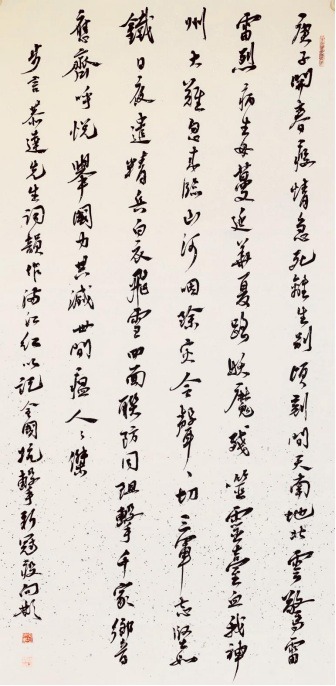 庚子開春疫情急死離生別頃刻間天南地北雲驚雷
雷烈病毒蔓延華夏路妖魔殘噬靈臺血我神
州大難忽來臨山河咽除災令聲〻切三軍志堅如
鐵日夜遣精兵白衣飛雪四面聯防同阻擊千家鄉音
應齊呼悅舉國力共滅世間瘟人〻傑
步言恭達先生詞韻作滿江紅以記全國抗擊新冠疫向彬